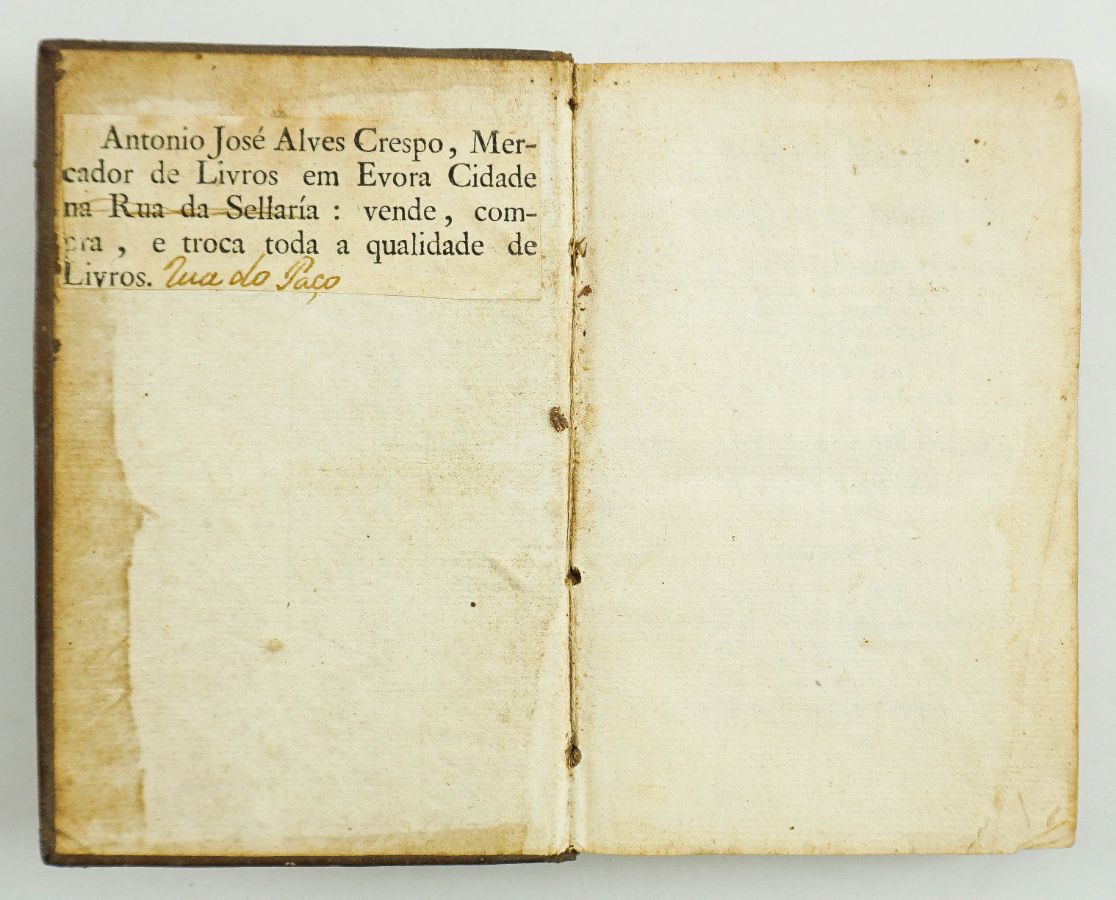 Antonio José Alves Crespo, Mer-
cador de Livros em Evora Cidade
na Rua da Sellaría : vende, com-
pra, e troca toda a qualidade de
Livros. Rua do Paço